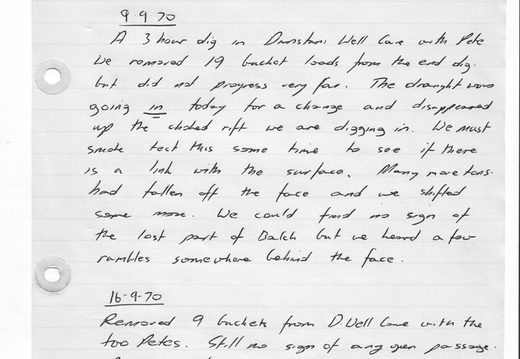 9 9 70
A 3 hour dig in Dunstans Well Cave with Pete
We removed 19 bucket loads from the end dig.
but did not progress very far. The draught was
going in today for a change and disappeared
up the choked rift we are digging in. We must
smoke test this some time to see if there
is a link with the surface. Many more tons.
had fallen off the face and we shifted
some more. We could find no sign of
the lost part of Balch but we heard a few
rumbles somewhere behind the face.
16-9-70
Removed 9 buckets from D. Well Cave with the
two Petes. Still no sign of any open passage.